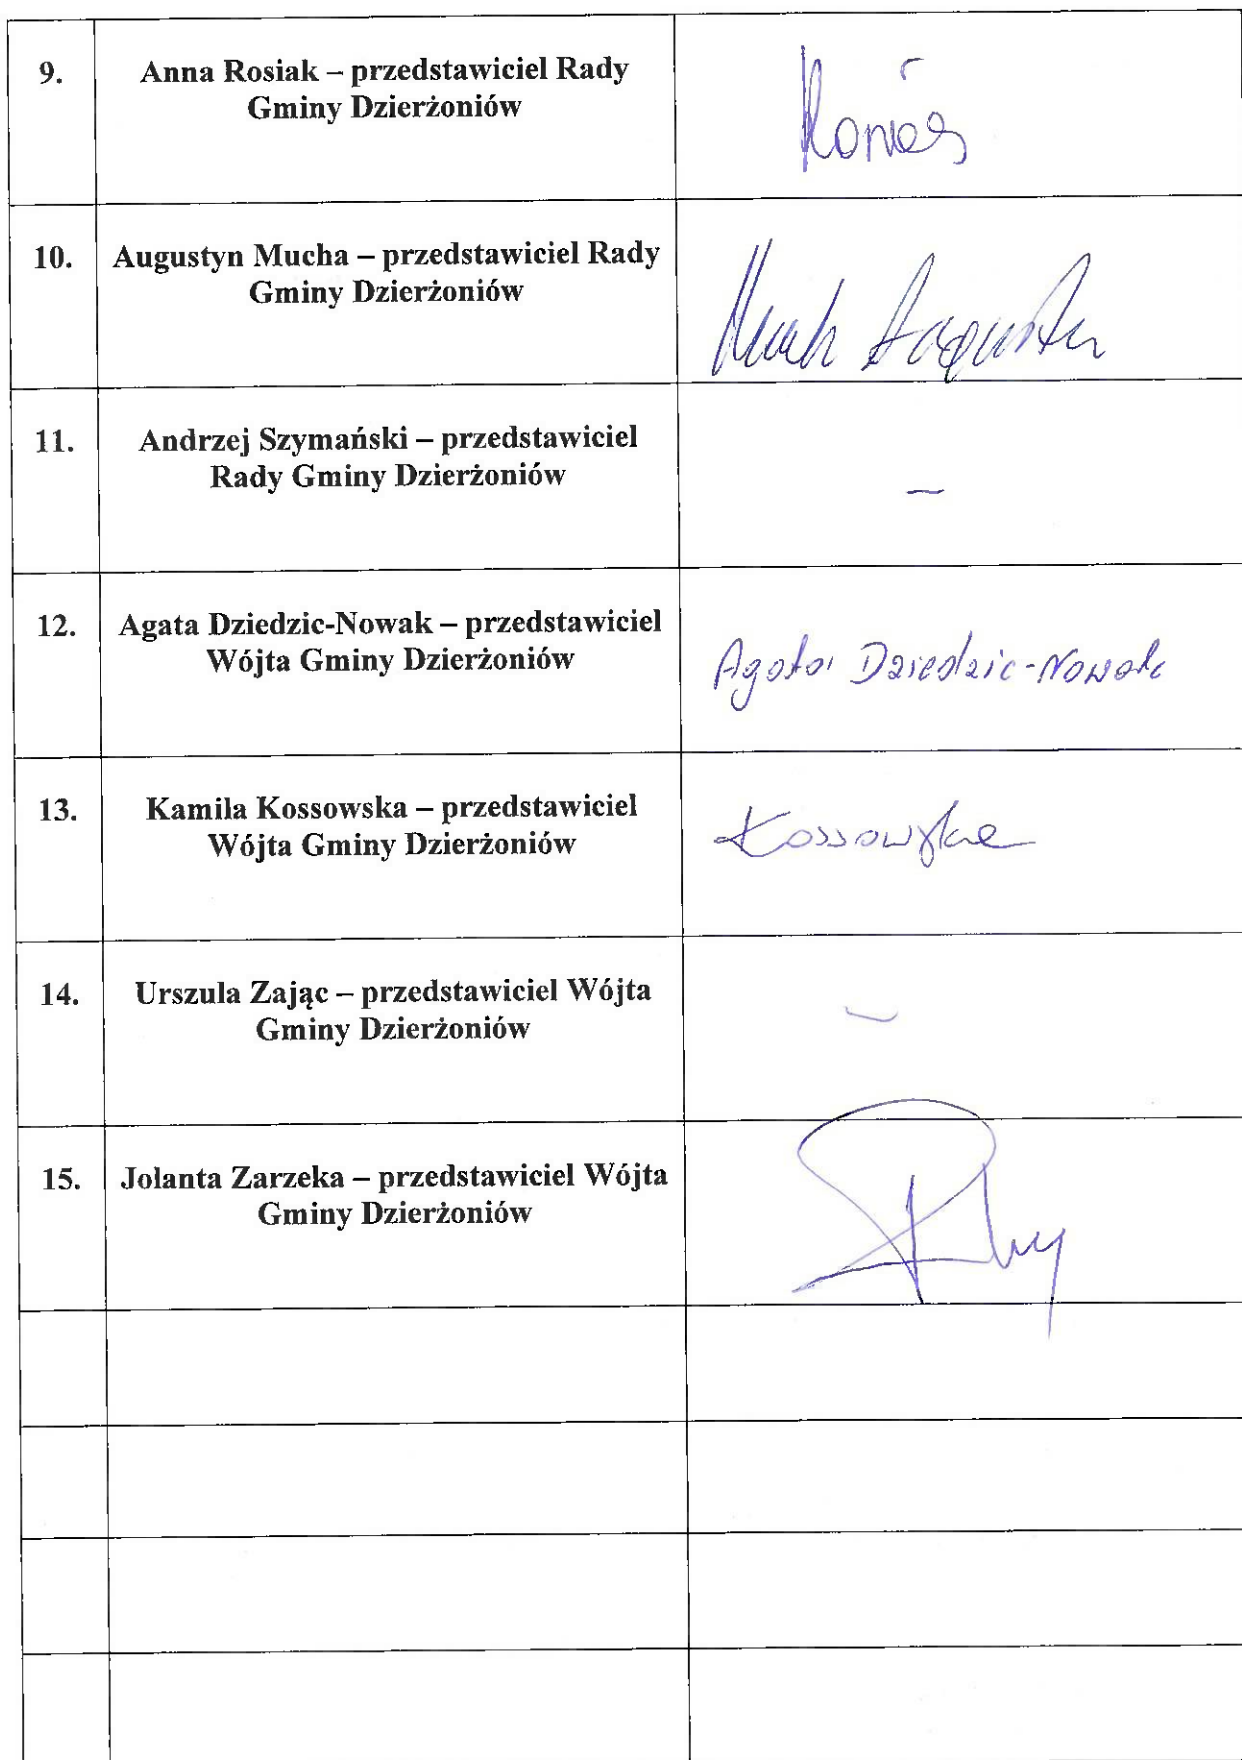 9.
Anna Rosiak – przedstawiciel Rady
Gminy Dzierżoniów
10.
Augustyn Mucha – przedstawiciel Rady
Gminy Dzierżoniów
11.
Andrzej Szymański – przedstawiciel
Rady Gminy Dzierżoniów
–
12.
Agata Dziedzic-Nowak – przedstawiciel
Wójta Gminy Dzierżoniów
Agata Dziedzic-Nowak
13.
Kamila Kossowska – przedstawiciel
Wójta Gminy Dzierżoniów
Kossowska
14.
Urszula Zając – przedstawiciel Wójta
Gminy Dzierżoniów
–
15.
Jolanta Zarzeka – przedstawiciel Wójta
Gminy Dzierżoniów